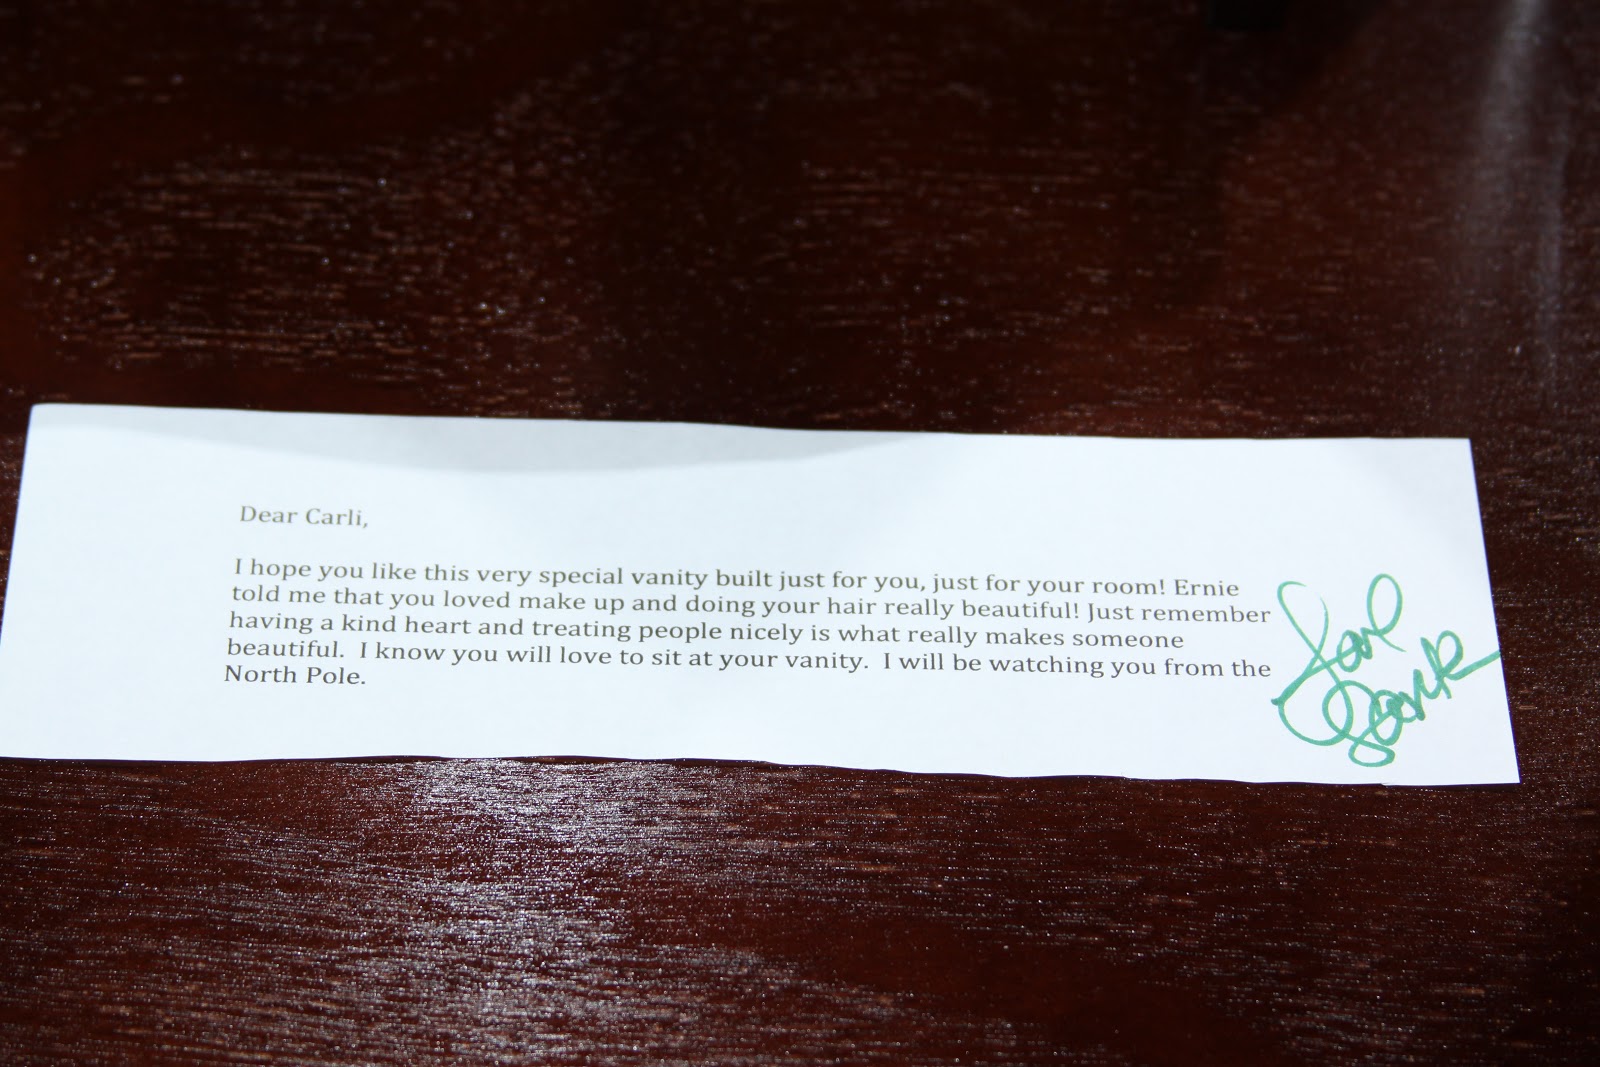 Dear Carli,
I hope you like this very special vanity built just for you, just for your room! Ernie
told me that you loved make up and doing your hair really beautiful! Just remember
having a kind heart and treating people nicely is what really makes someone
beautiful.  I know you will love to sit at your vanity.  I will be watching you from the
North Pole.
Love
Santa